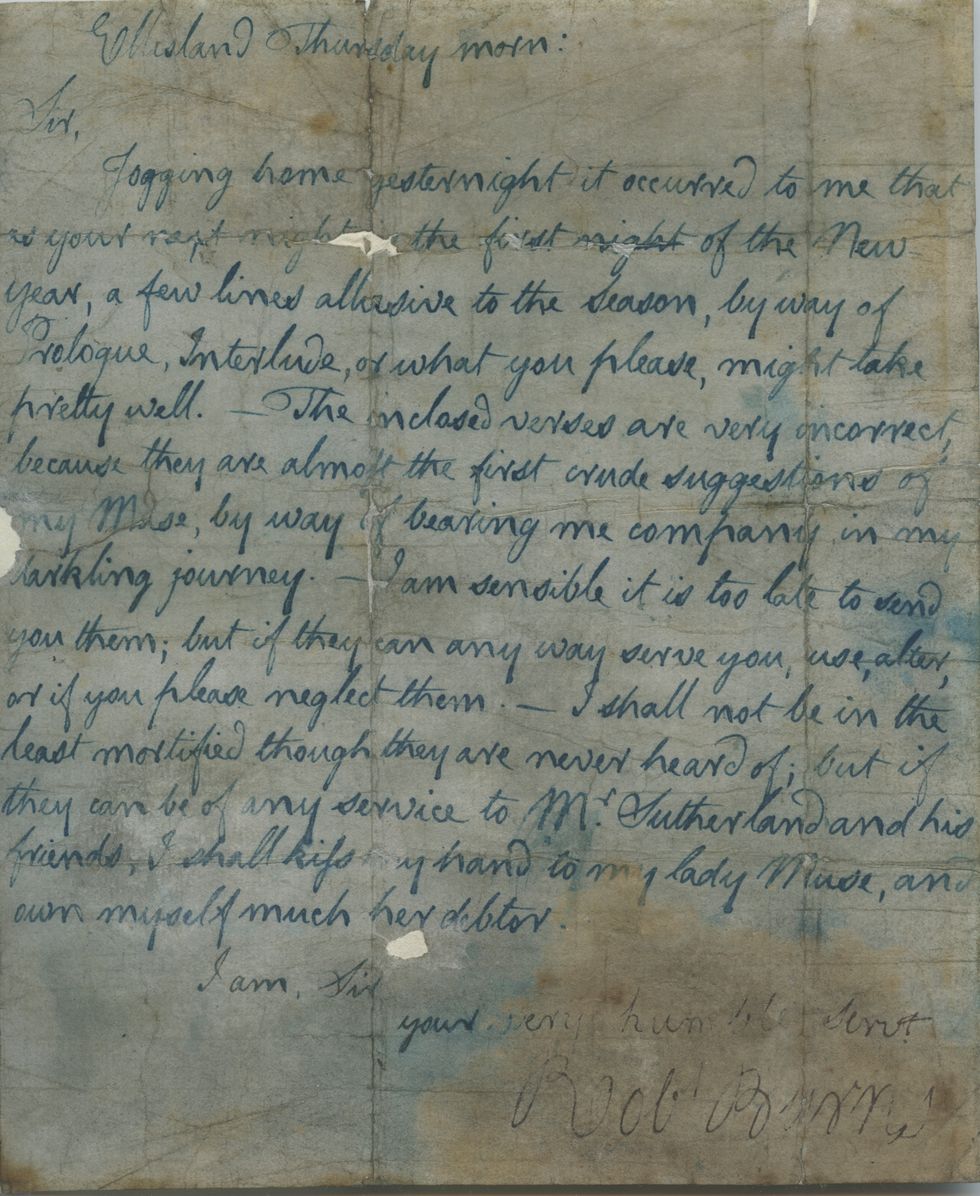 Ellisland Thursday morn:
Sir,
Jogging home yesternight it occurred to me that
as your next night is the first night of the New-
year, a few lines allusive to the season, by way of
Prologue, Interlude, or what you please, might take
pretty well. — The inclosed verses are very incorrect,
because they are almost the first crude suggestions of
my Muse, by way of bearing me company in my
darkling journey. — I am sensible it is too late to send
you them; but if they can any way serve you, use, alter,
or if you please neglect them. — I shall not be in the
least mortified though they are never heard of; but if
they can be of any service to Mr. Sutherland and his
friends, I shall kiss my hand to my lady Muse, and
own myself much her debtor.
I am, Sir
your very humble servt.
Robt Burns